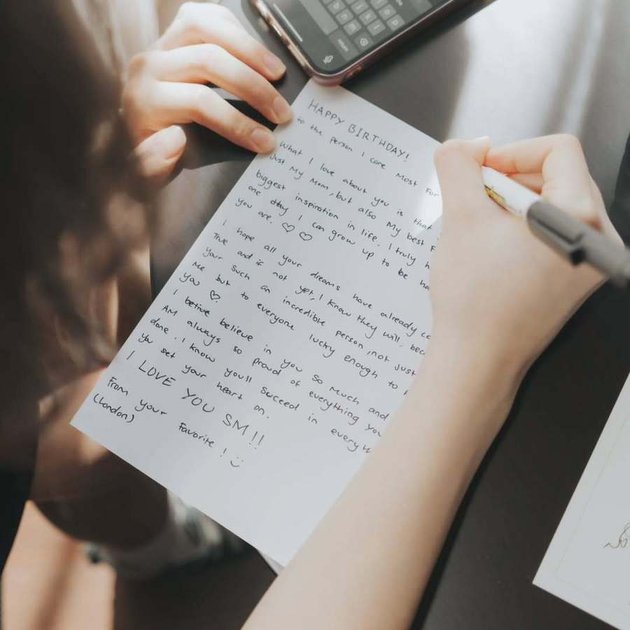 HAPPY BIRTHDAY!
to the person I care most for
What I love about you is that
Just My Mom, but also My best
biggest inspiration in life. I truly
one day I can grow up to be
you are. ♡ ♡
I hope all your dreams have already
True and if not yet, I know they will,
your such an incredible person, not just
Me but to everyone lucky enough to
you ♡
I believe in you so much and
AM always so proud of everything you
done. I know you'll succeed in
you set your heart on.
I LOVE YOU SM!!
From your Favorite! :)
(London)